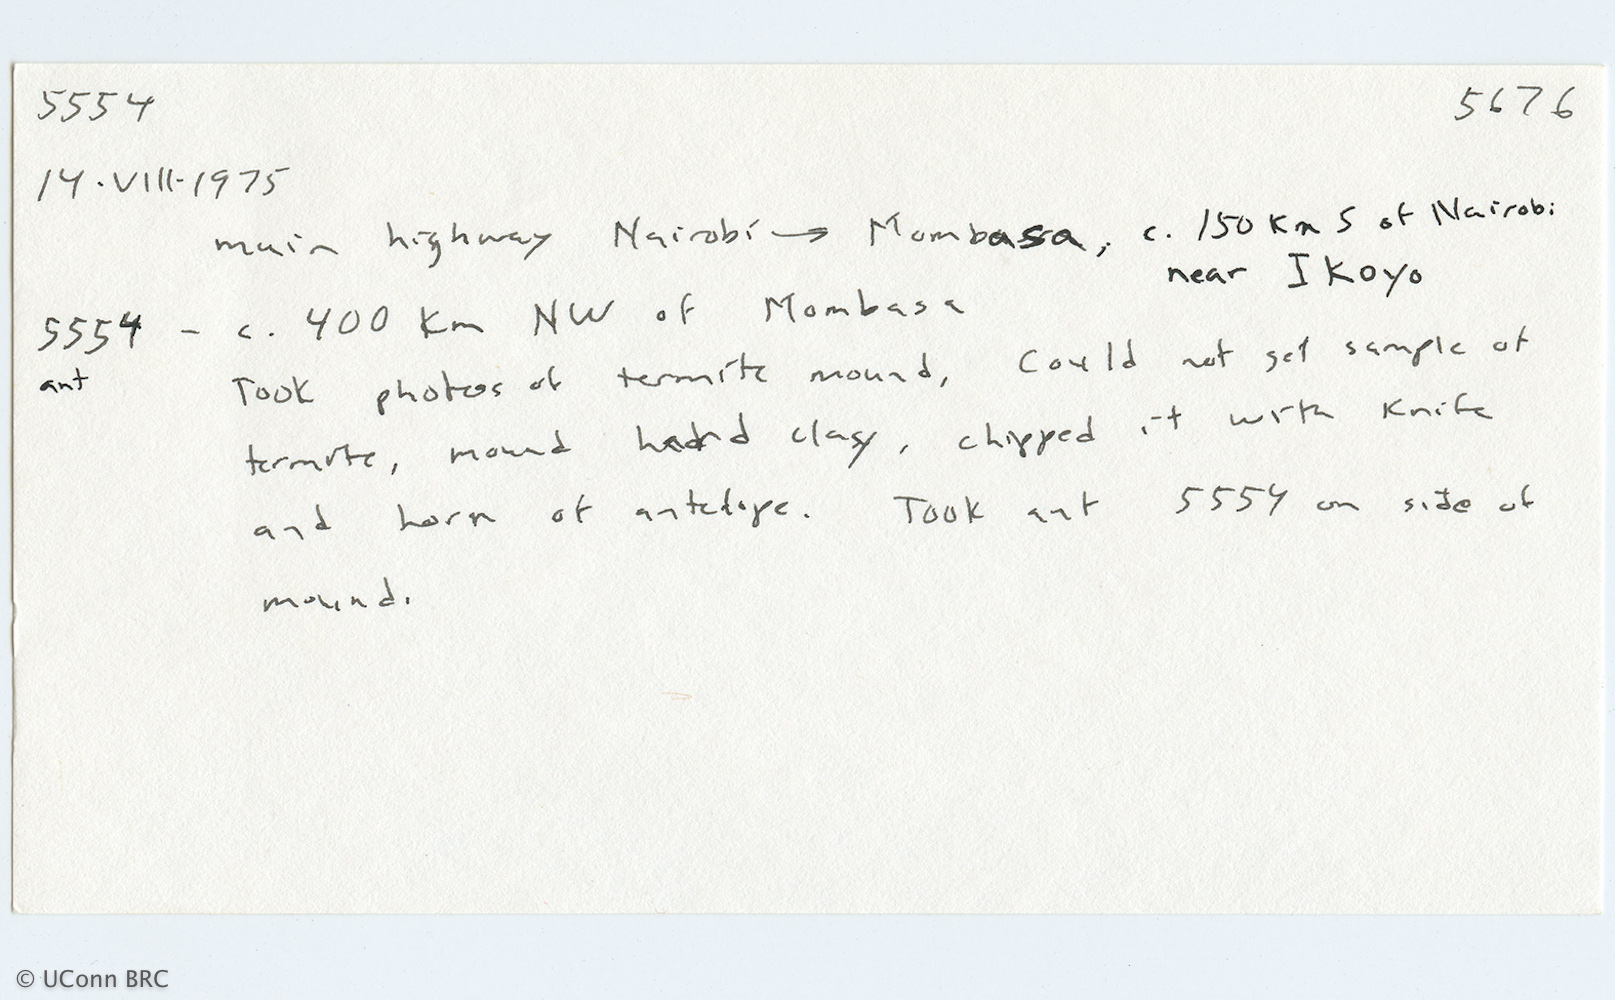 5554 5676
14.VIII-1975
main highway Nairobi → Mombasa, c. 150 Km S of Nairobi
near IKoyo
5554 - c. 400 Km NW of Mombasa
ant Took photos of termite mound, Could not get sample of
termite, mound hard clay, chipped it with Knife
and horn of antelope. Took ant 5554 on side of
mound.
© UConn BRC